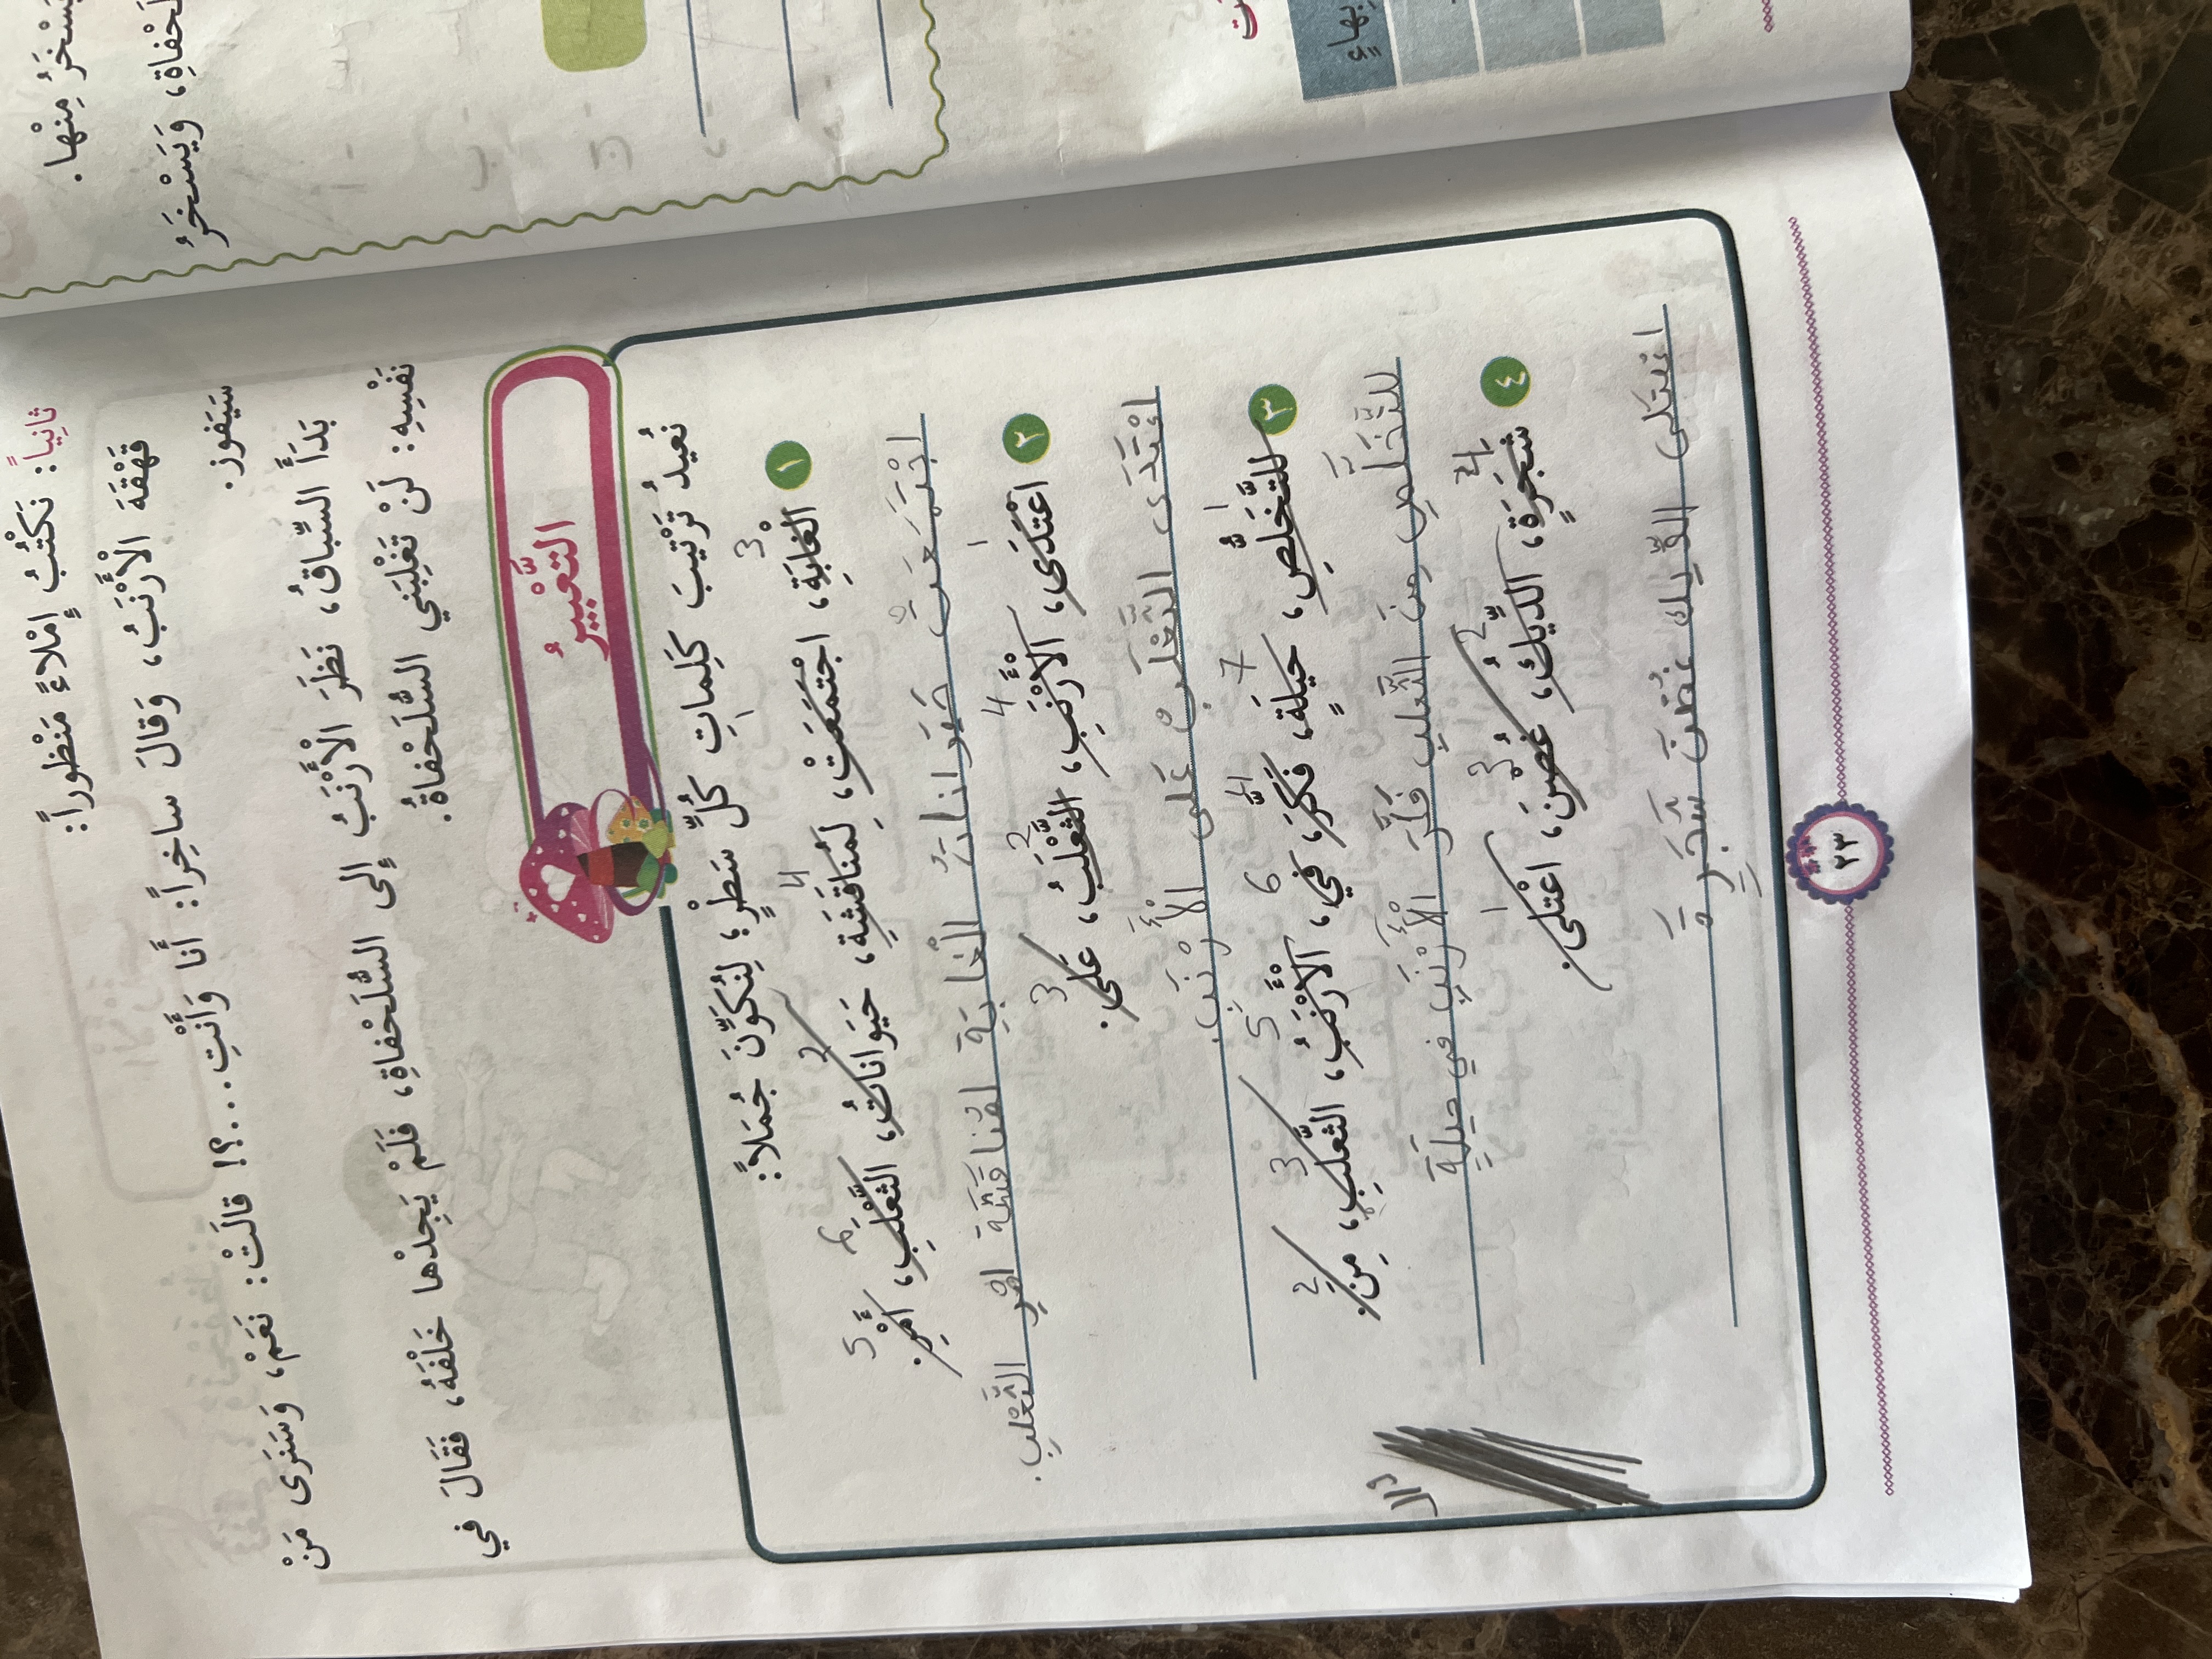 سْخَرُ مِنْها.
لَحْفاةِ، وَيَسْخَرُ
بِهاءٍ
ثانِياً: نَكْتُبُ إِمْلاءً مَنْظوراً:
قَهْقَهَ الْأَرْنَبُ، وَقالَ ساخِراً: أَنا وَأَنْتِ...؟! قالَتْ: نَعَمْ، وَسَنَرى مَنْ
سَيَفوز.
بَدَأَ السِّباقُ، نَظَرَ الْأَرْنَبُ إِلى السُّلَحْفاةِ، فَلَمْ يَجِدْها خَلْفَهُ، فَقالَ في
نَفْسِهِ: لَنْ تَغْلِبَني السُّلَحْفاةُ.
التَّعْبيرُ
نُعيدُ تَرْتيبَ كَلِماتِ كُلِّ سَطْرٍ؛ لِنُكَوِّنَ جُمَلاً:
3 1 4 2 6 5
١ الْغابَةِ، اجْتَمَعَتْ، لِمُناقَشَةِ، حَيَواناتُ، الثَّعْلَبِ، أَمْرِ.
اجْتَمَعَتْ حَيَواناتُ الْغابَةِ لمُناقَشَة امْرِ الثَّعْلَبِ.
1 4 2 3
٢ اعْتَدى، الْأَرْنَبِ، الثَّعْلَبُ، عَلى.
اعْتَدَى الثَّعْلَب عَلى الأَرْنَب.
1 7 4 6 5 3 2
٣ لِلتَّخَلُّصِ، حيلَةٍ، فَكَّرَ، في، الْأَرْنَبُ، الثَّعْلَبِ، مِنَ.
للتَّخَلُّصِ مِنَ الثَّعلبِ فَكَّرَ الأَرْنَب في حيلَةٍ
4 2 3 1
٤ شَجَرَةٍ، الدّيكُ، غُصْنَ، اعْتَلى.
اعتلى الدّيك غُصْنَ شَجَرَةٍ
٢٣